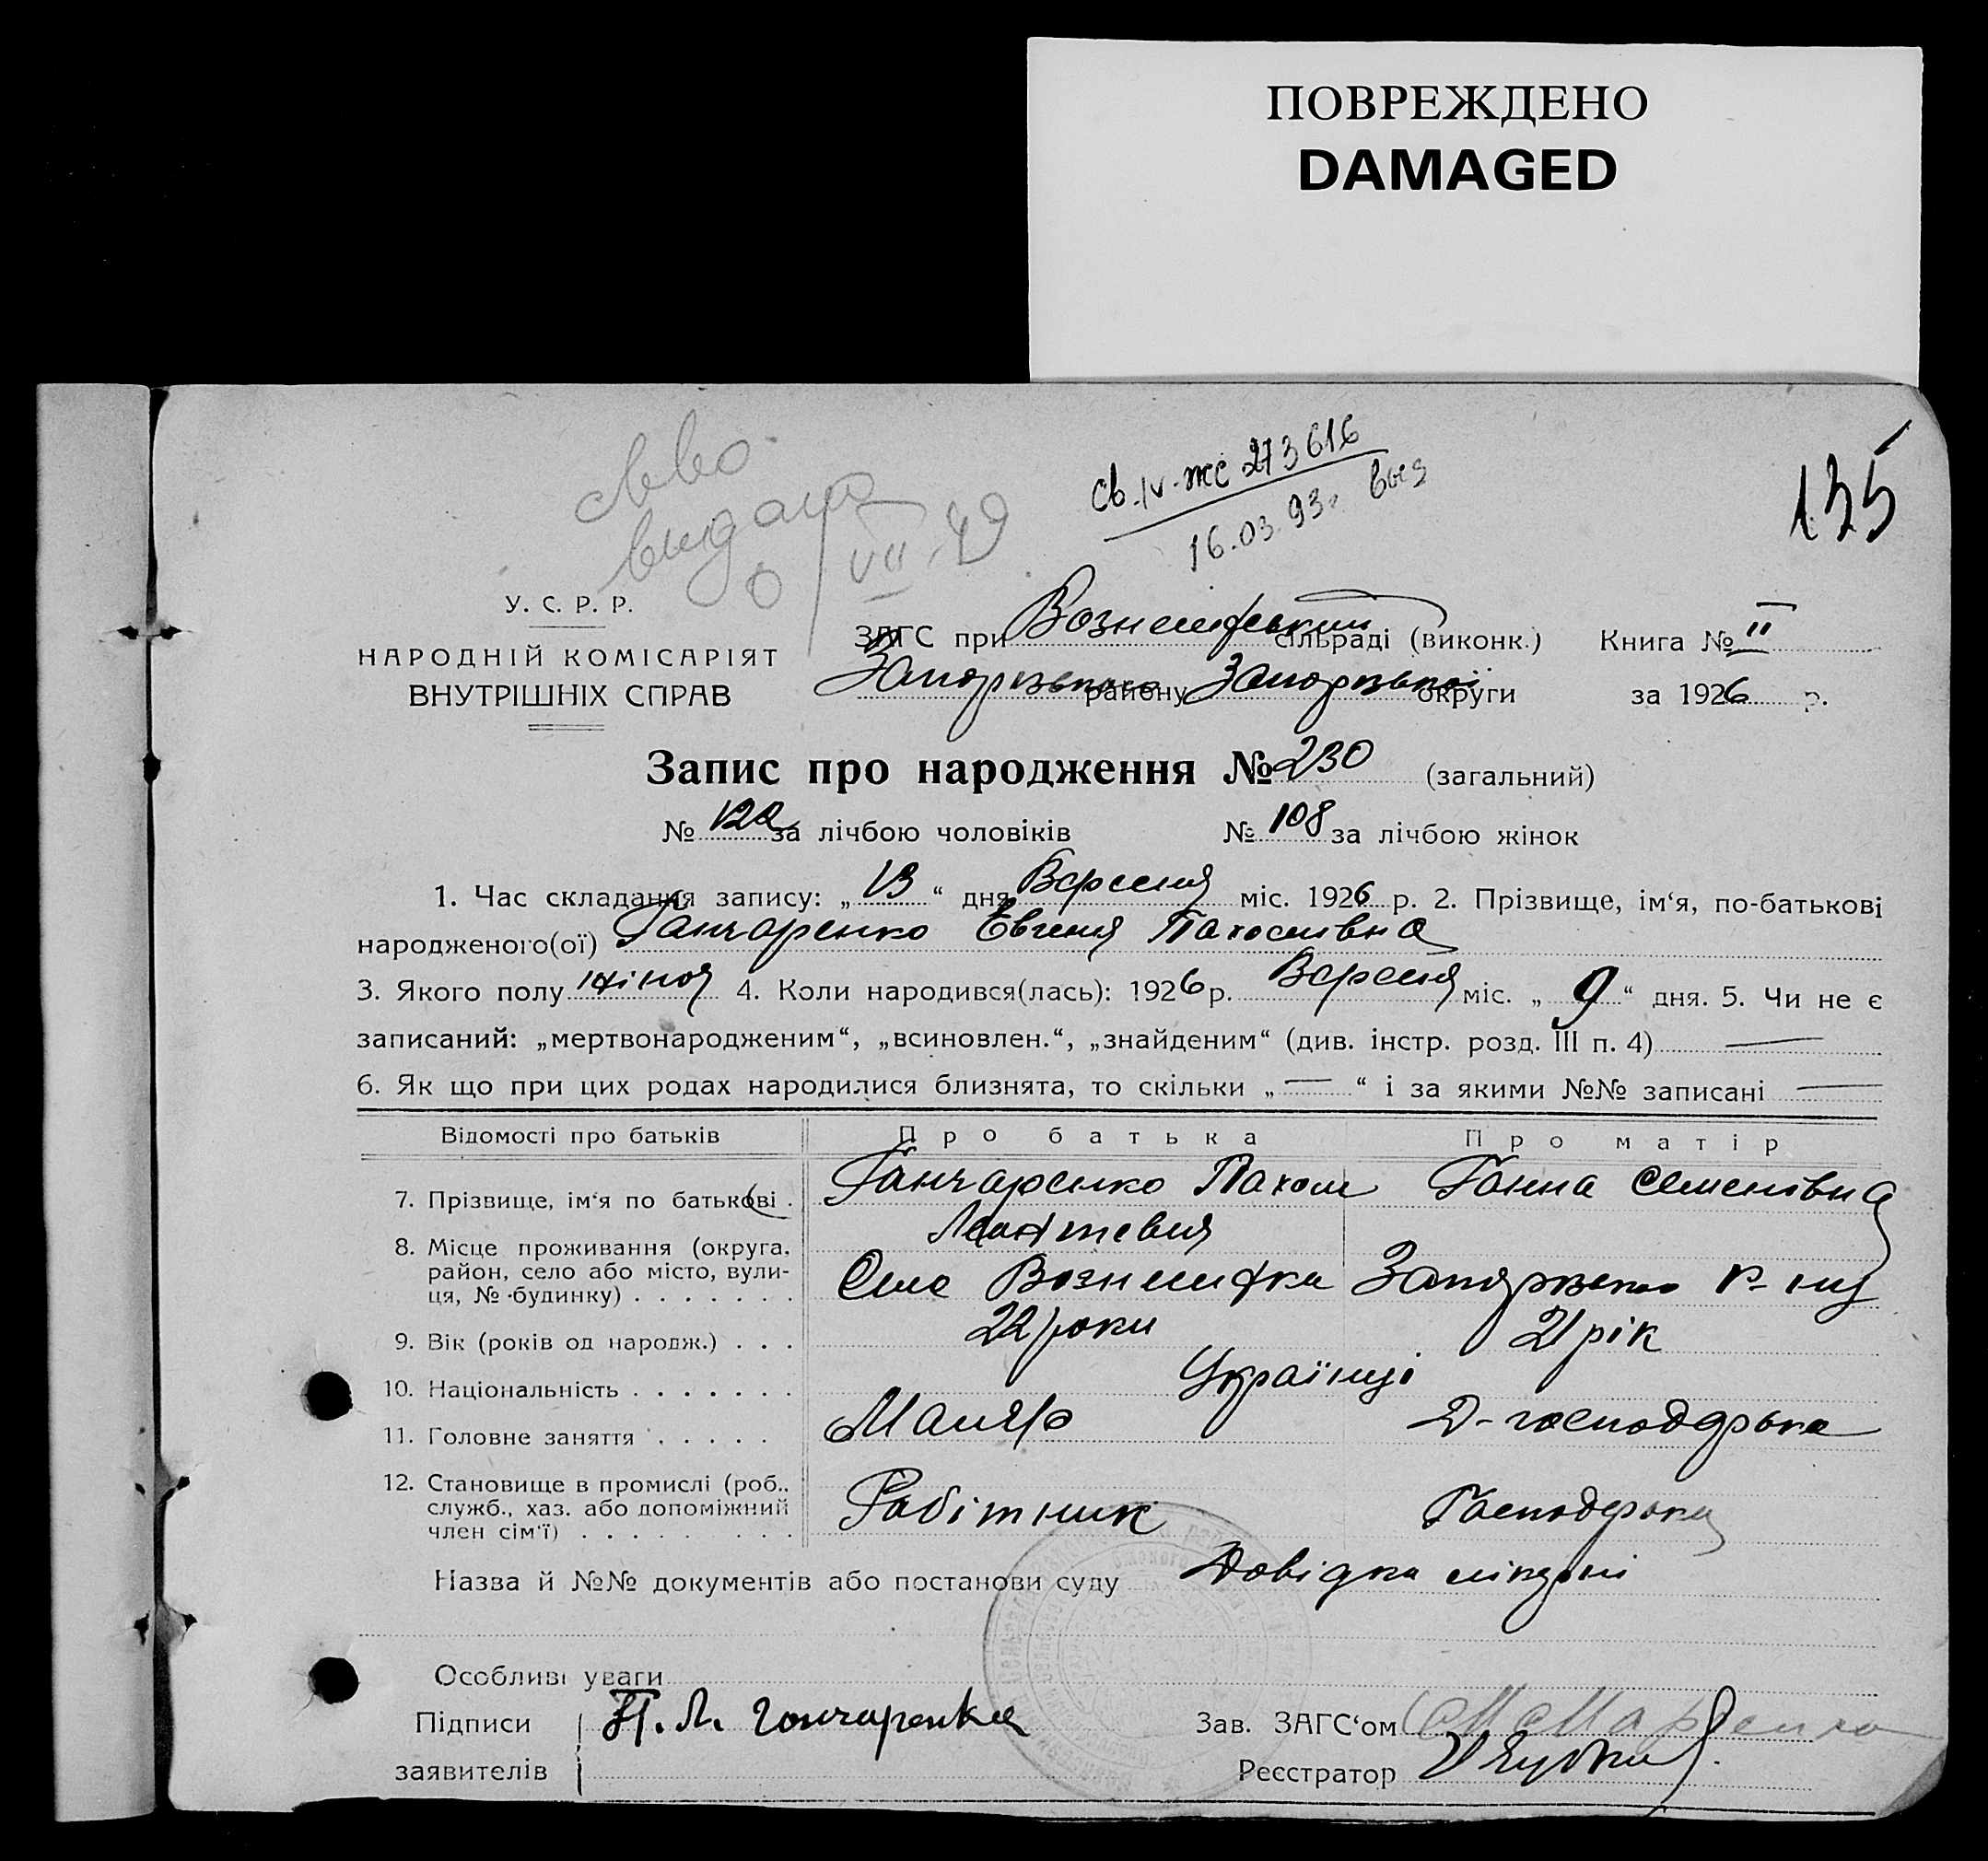 ПОВРЕЖДЕНО
DAMAGED
св. IV-жс 273616
16.03.93г. выд
135
свво
видано
0/VII.49
У. С. Р. Р.
НАРОДНІЙ КОМІСАРІЯТ
ВНУТРІШНІХ СПРАВ
ЗАГС при Вознесенській сільраді (виконк.) Книга № II
Запорізького району Запорізької округи за 1926 р.
Запис про народження № 230 (загальний)
№ 122 за лічбою чоловіків № 108 за лічбою жінок
1. Час складання запису: „13“ дня Вересня міс. 1926 р. 2. Прізвище, ім‘я, по-батькові
народженого(ої) Ганчаренко Евгенія Пахомівна
3. Якого полу жіноч 4. Коли народився(лась): 1926 р. Вересня міс. „9“ дня. 5. Чи не є
записаний: „мертвонародженим“, „всиновлен.“, „знайденим“ (див. інстр. розд. III п. 4) —
6. Як що при цих родах народилися близнята, то скільки „—“ і за якими №№ записані —
Відомості про батьків Про батька Про матір
7. Прізвище, ім‘я по батькові . Ганчаренко Пахом Леонтевич Ганна Семенівна
8. Місце проживання (округа,
район, село або місто, вули-
ця, № будинку) . . . . . . . Село Вознесенка Запорізького р-ну
9. Вік (років од народж.) . . . 22 роки 21 рік
10. Національність . . . . . . . Українці
11. Головне заняття . . . . . Маляр Д-господарька
12. Становище в промислі (роб.,
служб., хаз. або допоміжний
член сім‘ї) . . . . . . . . . Робітник Господарька
Назва й №№ документів або постанови суду Довідка лікарні
Особливі уваги
Підписи П. Л. Гончаренка Зав. ЗАГС‘ом
заявителів Реєстратор